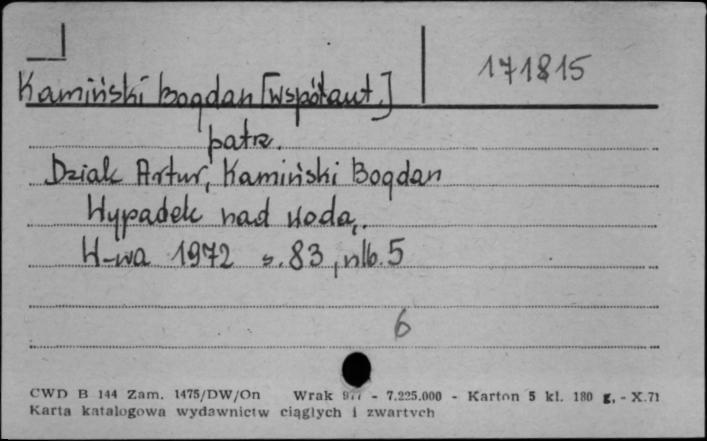 171815
Kamiński Bogdan [współaut.]
patrz.
Dziak Artur, Kamiński Bogdan
Wypadek nad wodą.
W-wa 1972 s. 83, nlb. 5
6
CWD B 144 Zam. 1475/DW/On Wrak - 7.225.000 - Karton 5 kl. 180 g, - X.71
Karta katalogowa wydawnictw ciąglych i zwartych